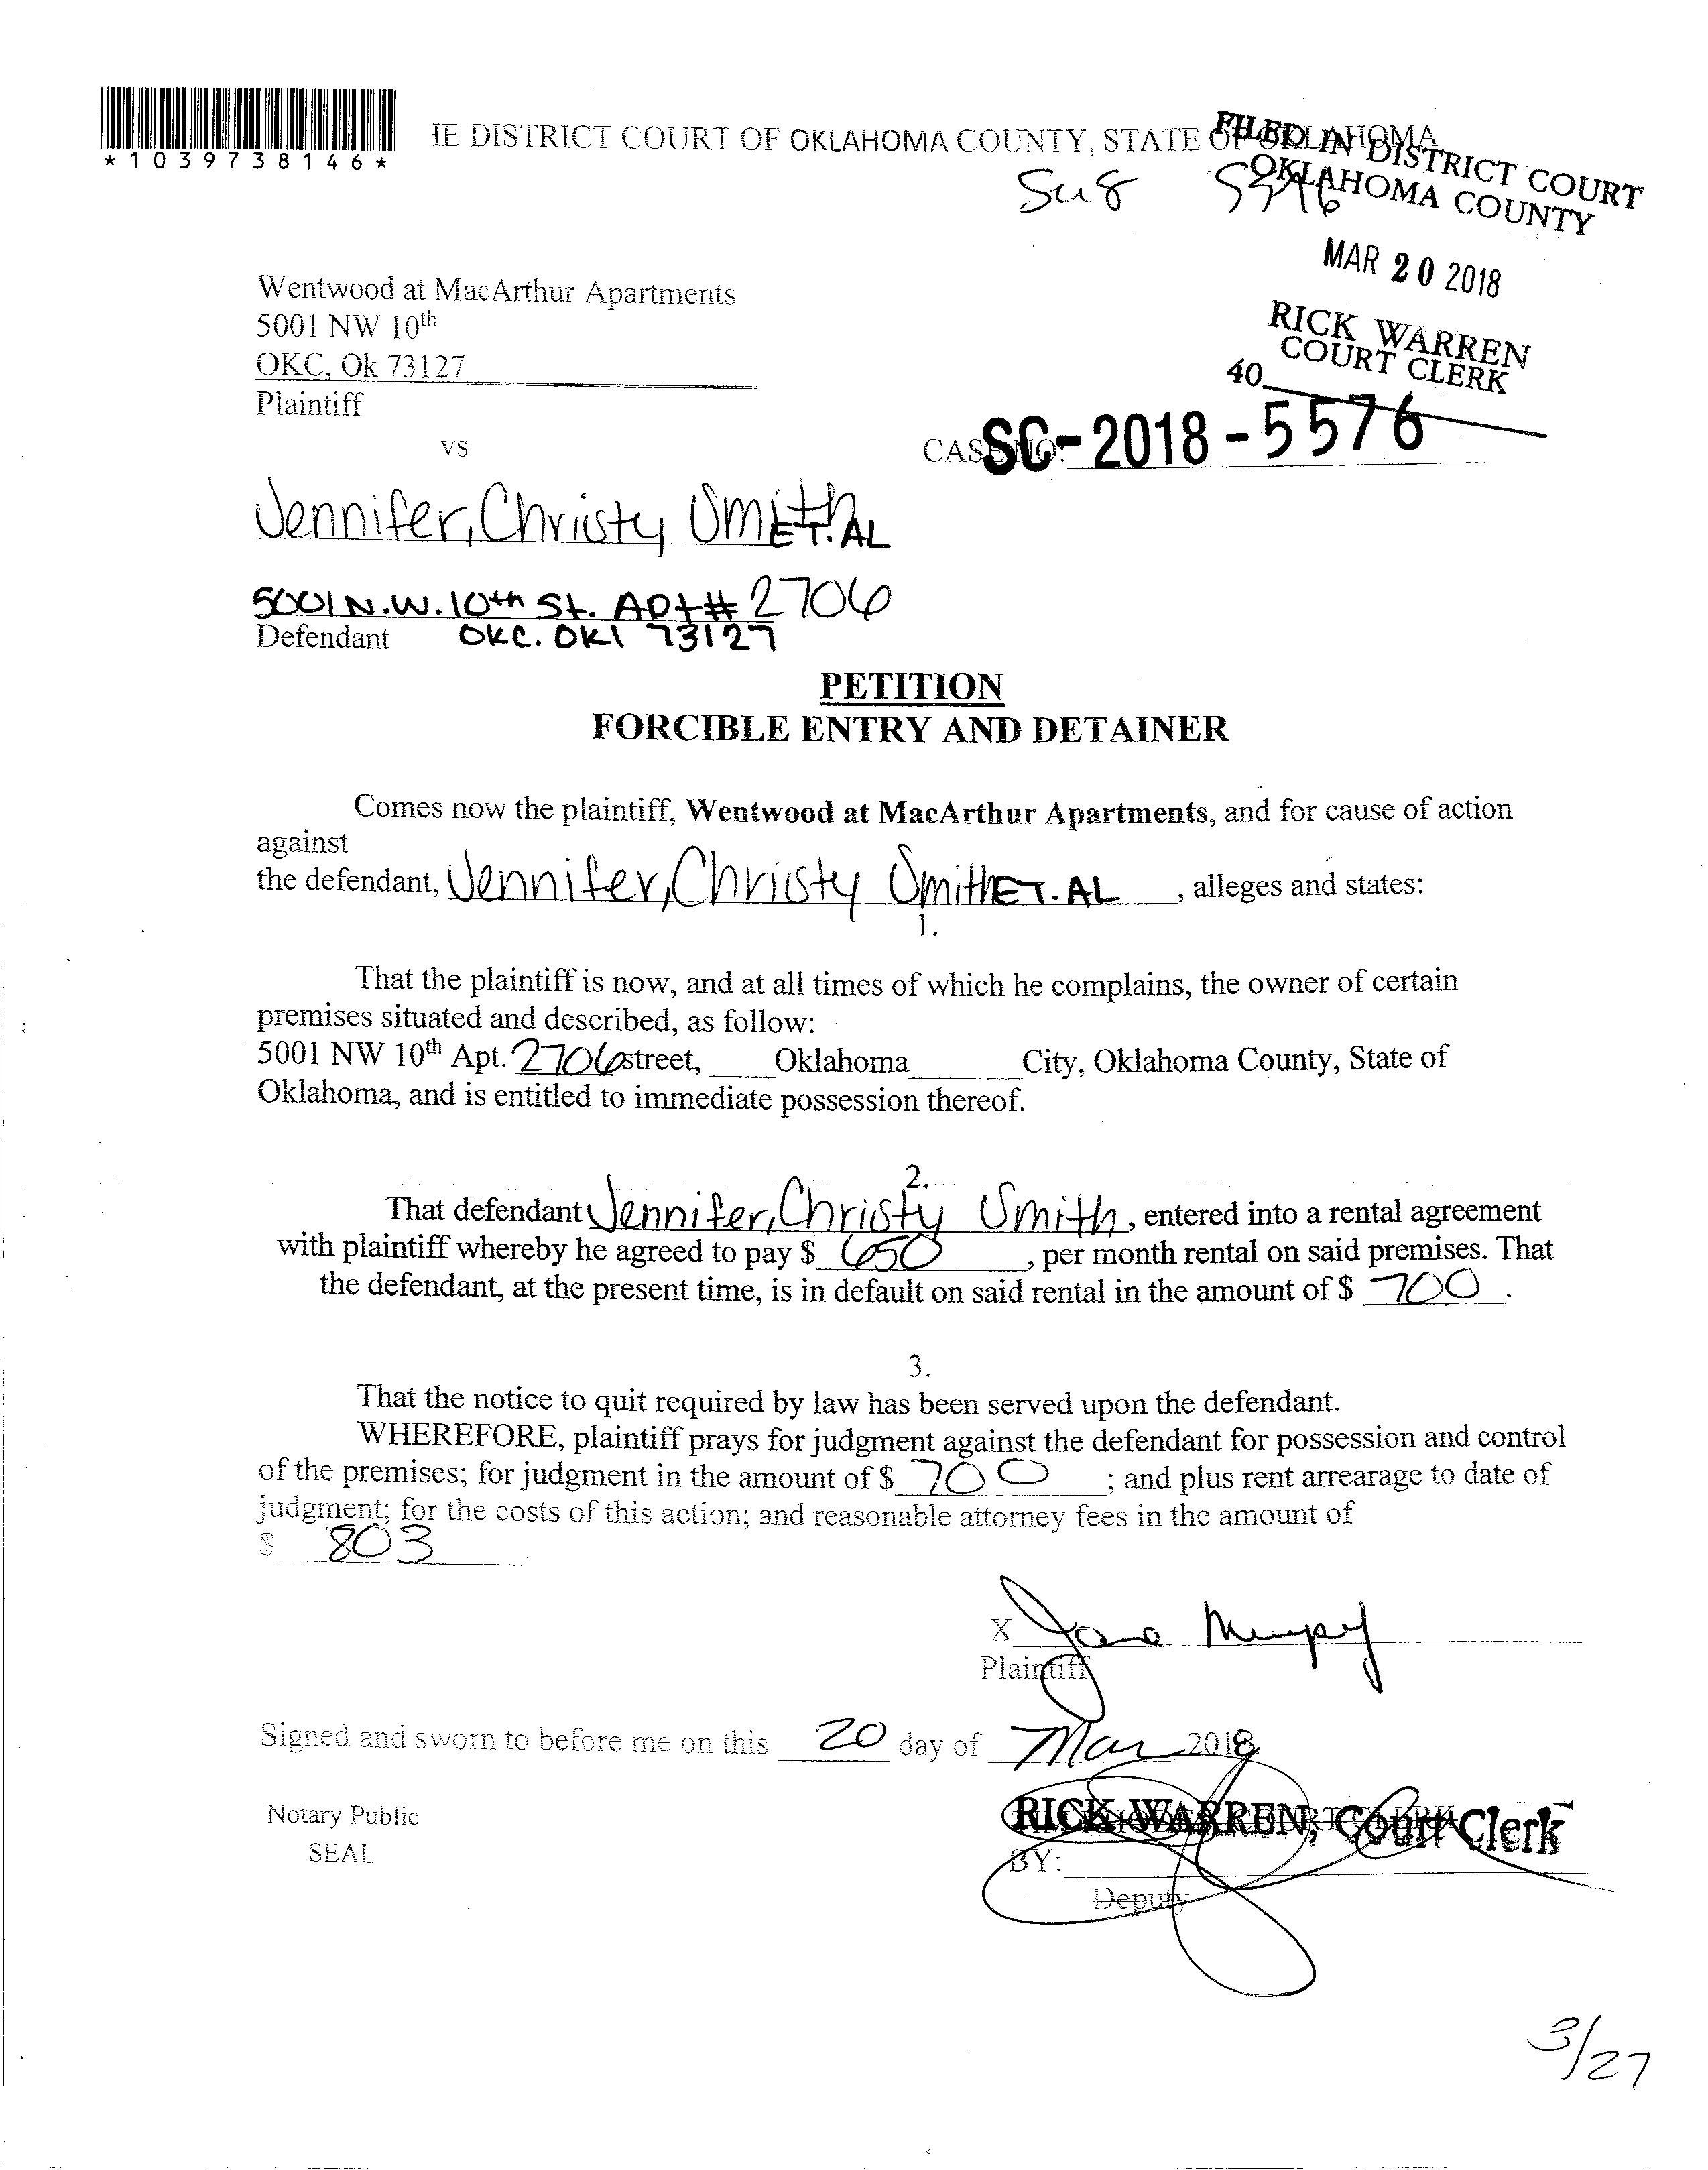 *1039738146*
IE DISTRICT COURT OF OKLAHOMA COUNTY, STATE OF OKLAHOMA
FILED IN DISTRICT COURT
OKLAHOMA COUNTY
MAR 20 2018
RICK WARREN
COURT CLERK
40
Wentwood at MacArthur Apartments
5001 NW 10th
OKC, Ok 73127
Plaintiff
vs
CASE NO. SC-2018-5576
Jennifer, Christy Smith ET. AL
5001 N.W. 10th St. APt# 2706
Defendant OKC. OKl 73127
PETITION
FORCIBLE ENTRY AND DETAINER
Comes now the plaintiff, Wentwood at MacArthur Apartments, and for cause of action
against
the defendant, Jennifer, Christy Smith ET. AL , alleges and states:
1.
That the plaintiff is now, and at all times of which he complains, the owner of certain
premises situated and described, as follow:
5001 NW 10th Apt. 2706 street, ____Oklahoma_______City, Oklahoma County, State of
Oklahoma, and is entitled to immediate possession thereof.
2.
That defendant Jennifer, Christy Smith, entered into a rental agreement
with plaintiff whereby he agreed to pay $ 650 , per month rental on said premises. That
the defendant, at the present time, is in default on said rental in the amount of $ 700 .
3.
That the notice to quit required by law has been served upon the defendant.
WHEREFORE, plaintiff prays for judgment against the defendant for possession and control
of the premises; for judgment in the amount of $ 700 ; and plus rent arrearage to date of
judgment; for the costs of this action; and reasonable attorney fees in the amount of
$ 803
X
Plaintiff
Signed and sworn to before me on this 20 day of Mar 2018
Notary Public
SEAL
RICK WARREN, Court Clerk
BY:
Deputy
3/27